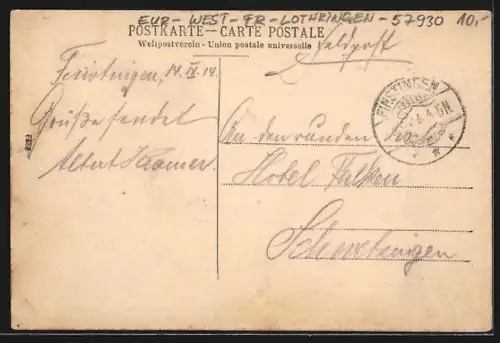 EUR-WEST-FR-LOTHRINGEN-57930 10,-
POSTKARTE—CARTE POSTALE
Weltpostverein - Union postale universelle
Feldpost
Finstingen, 14. IV. 14.
Grüße sendet
Albert Kramer.
FINSTINGEN
An den runden Tisch
Hotel Falken
Schwetzingen